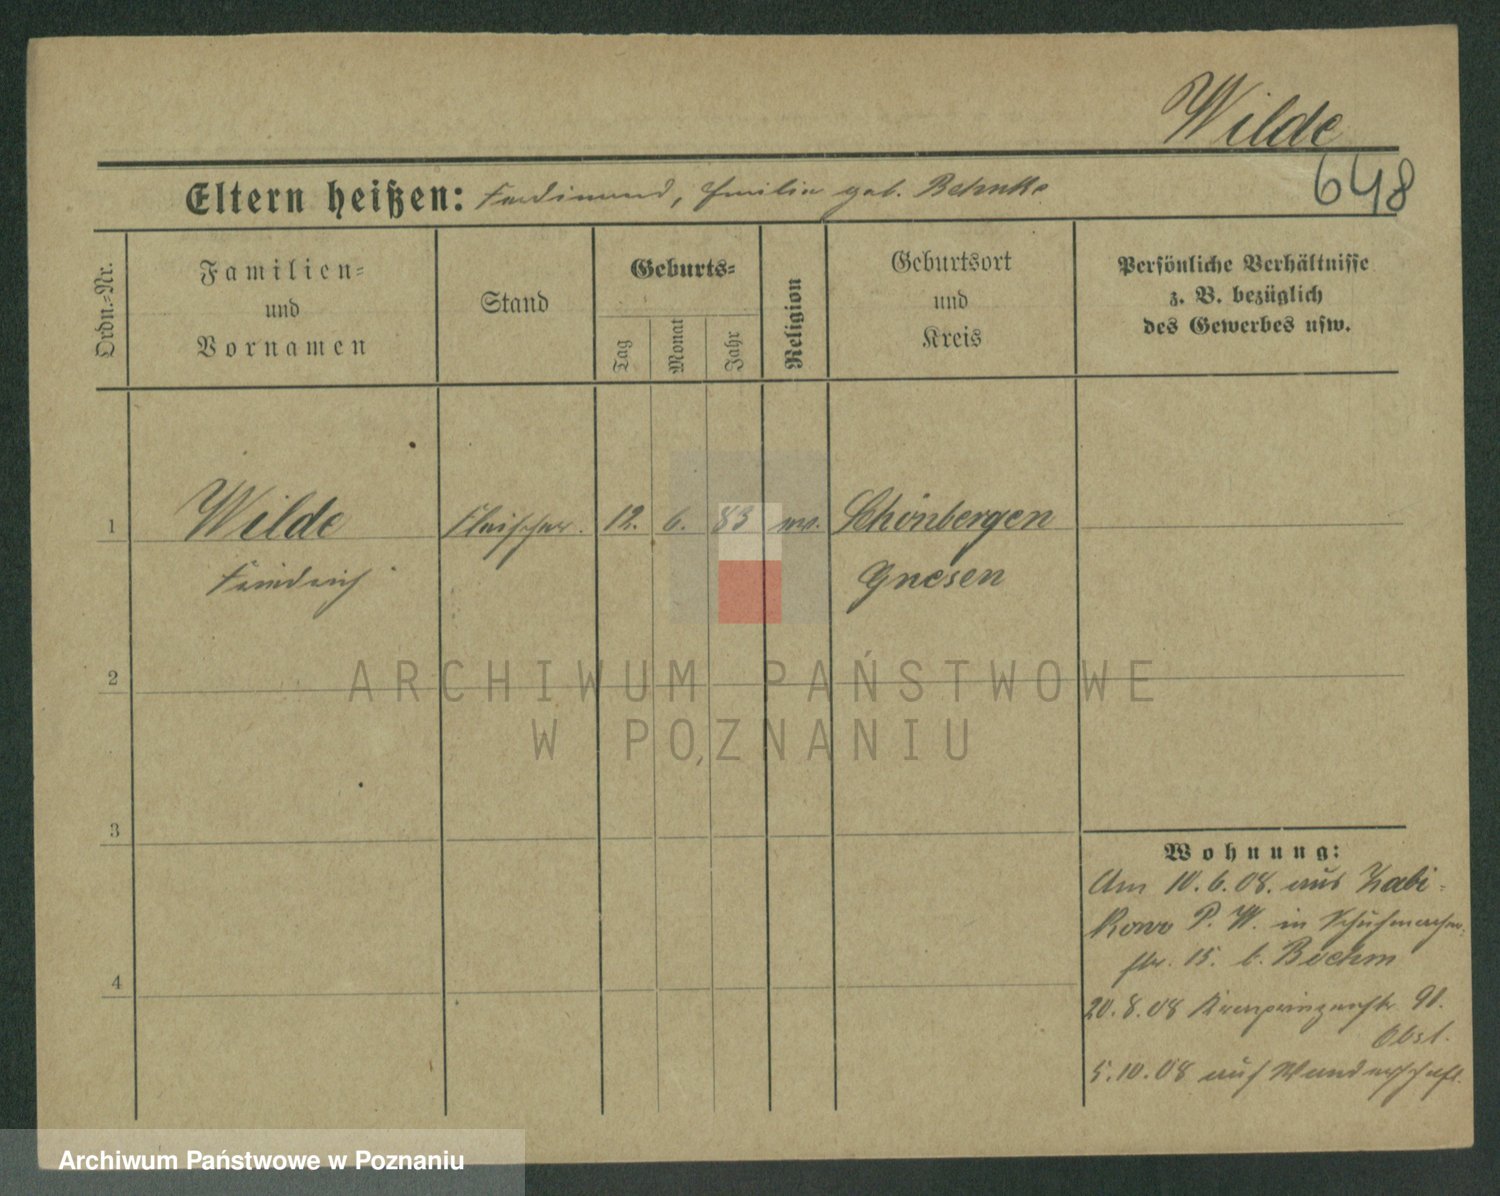 Wilde
648
Eltern heißen: Ferdinand, Emilie geb. Behnke
Ordn.-Nr.
Familien-
und
Vornamen
Stand
Geburts-
Tag
Monat
Jahr
Religion
Geburtsort
und
Kreis
Persönliche Verhältnisse
z. B. bezüglich
des Gewerbes usw.
1
Wilde
Fleischer.
12.
6.
83
ev.
Schönbergen
Friedrich
Gnesen
2
ARCHIWUM PAŃSTWOWE
W POZNANIU
3
4
Wohnung:
Am 10.6.08. aus Zabi-
kowo P. W. in Schuhmacher-
str. 15. b. Boehm
20.8.08 Kronprinzenstr. 91.
Obst.
5.10.08 auf Wanderschaft.
Archiwum Państwowe w Poznaniu